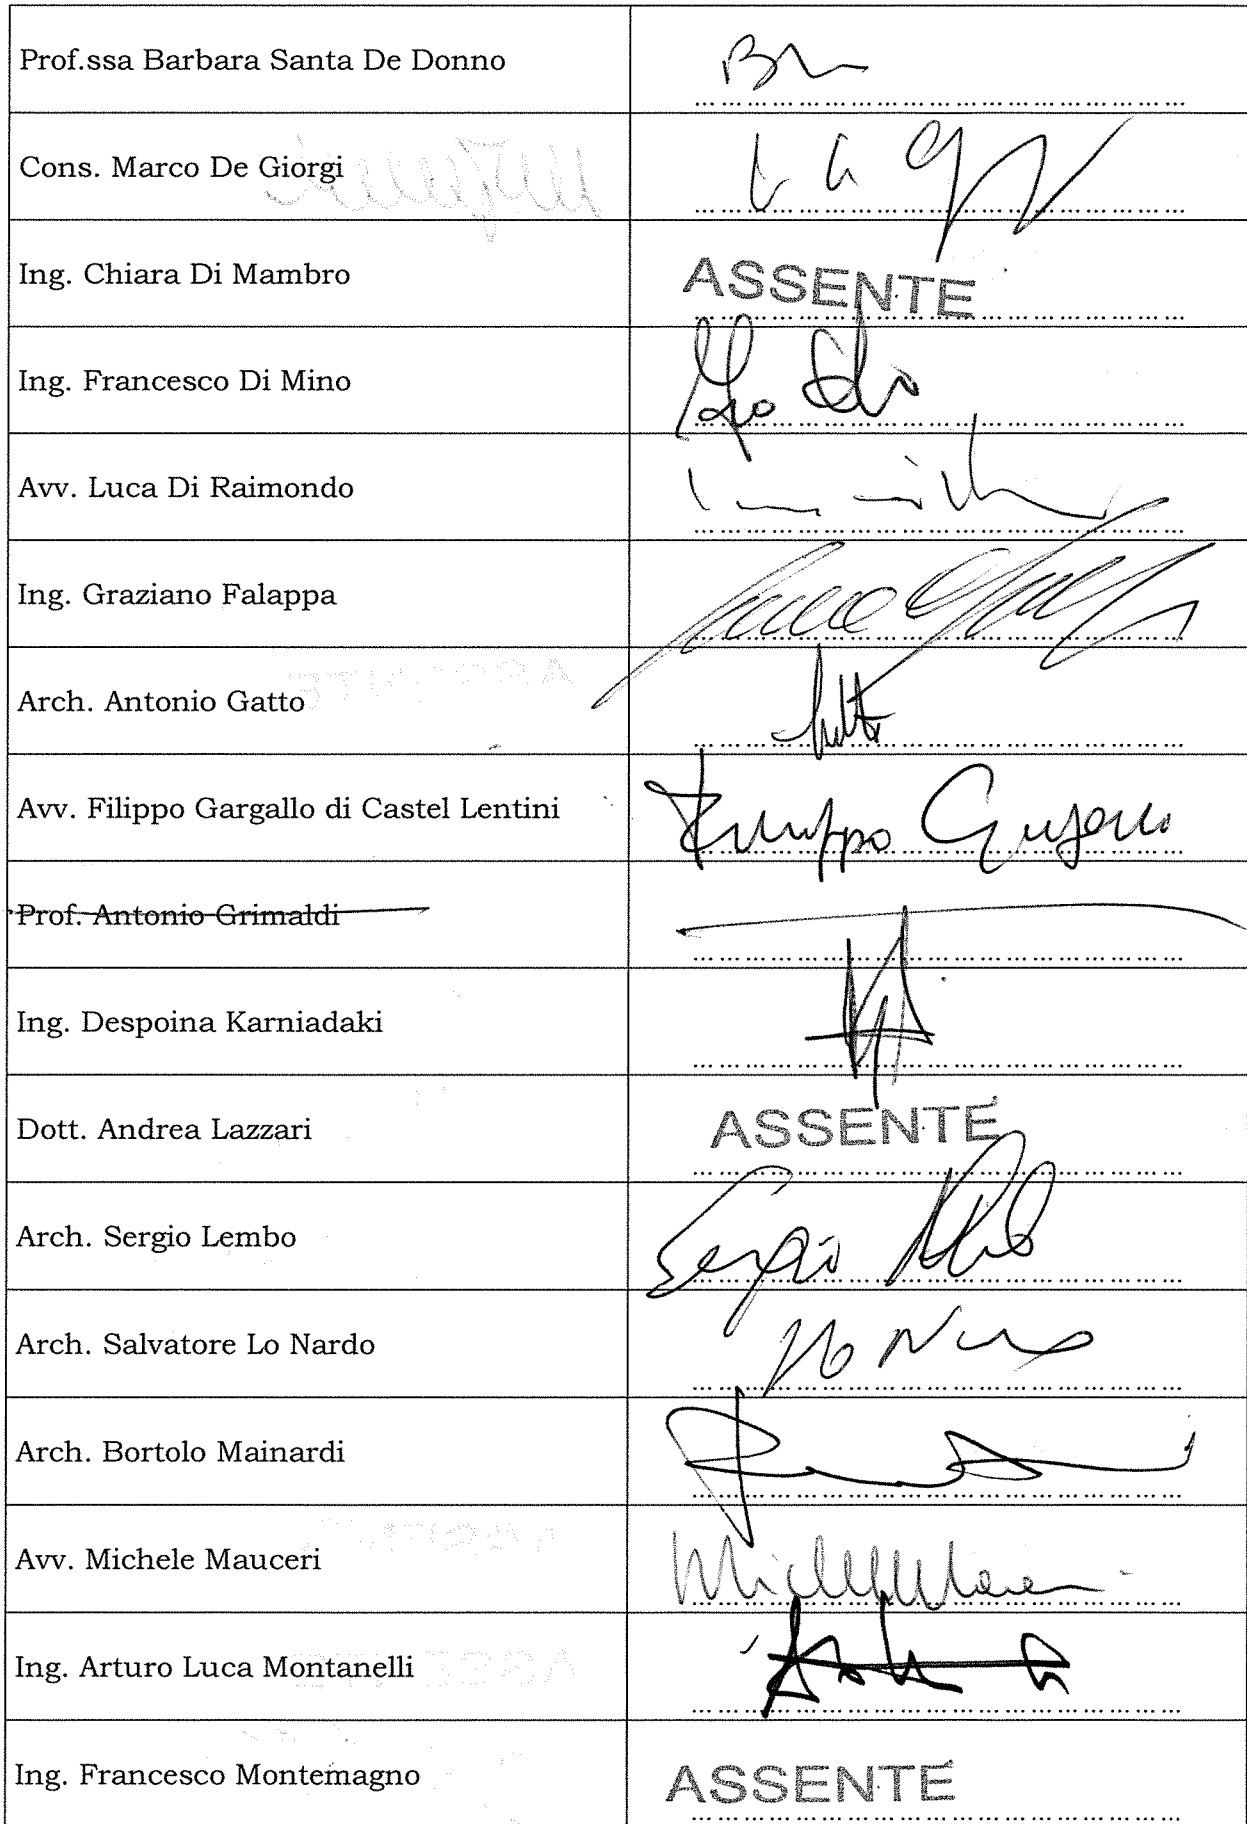 Prof.ssa Barbara Santa De Donno
Cons. Marco De Giorgi
Ing. Chiara Di Mambro
ASSENTE
Ing. Francesco Di Mino
Avv. Luca Di Raimondo
Ing. Graziano Falappa
Arch. Antonio Gatto
Avv. Filippo Gargallo di Castel Lentini
Filippo Gargallo
Prof. Antonio Grimaldi
Ing. Despoina Karniadaki
Dott. Andrea Lazzari
ASSENTE
Arch. Sergio Lembo
Sergio
Arch. Salvatore Lo Nardo
Arch. Bortolo Mainardi
Avv. Michele Mauceri
Ing. Arturo Luca Montanelli
Ing. Francesco Montemagno
ASSENTE